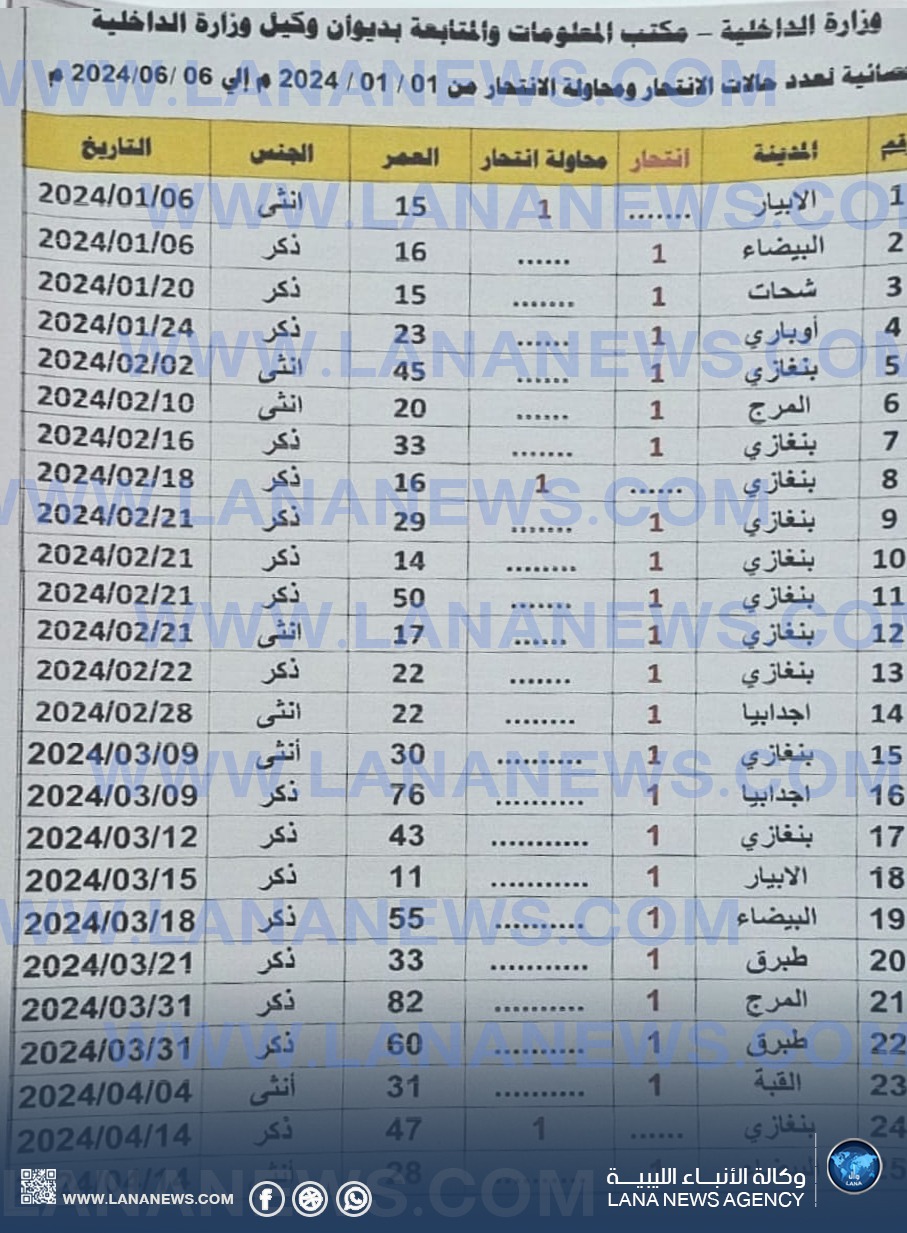 وزارة الداخلية – مكتب المعلومات والمتابعة بديوان وكيل وزارة الداخلية
لعدد حالات الانتحار ومحاولة الانتحار من 01 / 01 / 2024 م إلي 06 /2024/06 م
رقم المدينة انتحار محاولة انتحار العمر الجنس التاريخ
1 الابيار ....... 1 15 انثى 2024/01/06
2 البيضاء 1 ...... 16 ذكر 2024/01/06
3 شحات 1 ....... 15 ذكر 2024/01/20
4 أوباري 1 ...... 23 ذكر 2024/01/24
5 بنغازي 1 ...... 45 انثى 2024/02/02
6 المرج 1 ...... 20 انثى 2024/02/10
7 بنغازي 1 ....... 33 ذكر 2024/02/16
8 بنغازي ...... 1 16 ذكر 2024/02/18
9 بنغازي 1 ....... 29 ذكر 2024/02/21
10 بنغازي 1 ........ 14 ذكر 2024/02/21
11 بنغازي 1 ....... 50 ذكر 2024/02/21
12 بنغازي 1 ...... 17 انثى 2024/02/21
13 بنغازي 1 ....... 22 ذكر 2024/02/22
14 اجدابيا 1 ........ 22 انثى 2024/02/28
15 بنغازي 1 .......... 30 أنثى 2024/03/09
16 اجدابيا 1 .......... 76 ذكر 2024/03/09
17 بنغازي 1 ........... 43 ذكر 2024/03/12
18 الابيار 1 ........... 11 ذكر 2024/03/15
19 البيضاء 1 .......... 55 ذكر 2024/03/18
20 طبرق 1 ........... 33 ذكر 2024/03/21
21 المرج 1 .......... 82 ذكر 2024/03/31
22 طبرق 1 .......... 60 ذكر 2024/03/31
23 القبة 1 .......... 31 أنثى 2024/04/04
24 بنغازي ...... 1 47 ذكر 2024/04/14
28
WWW.LANANEWS.COM
وكالة الأنباء الليبية
LANA NEWS AGENCY
WWW.LANANEWS.COM
LANA